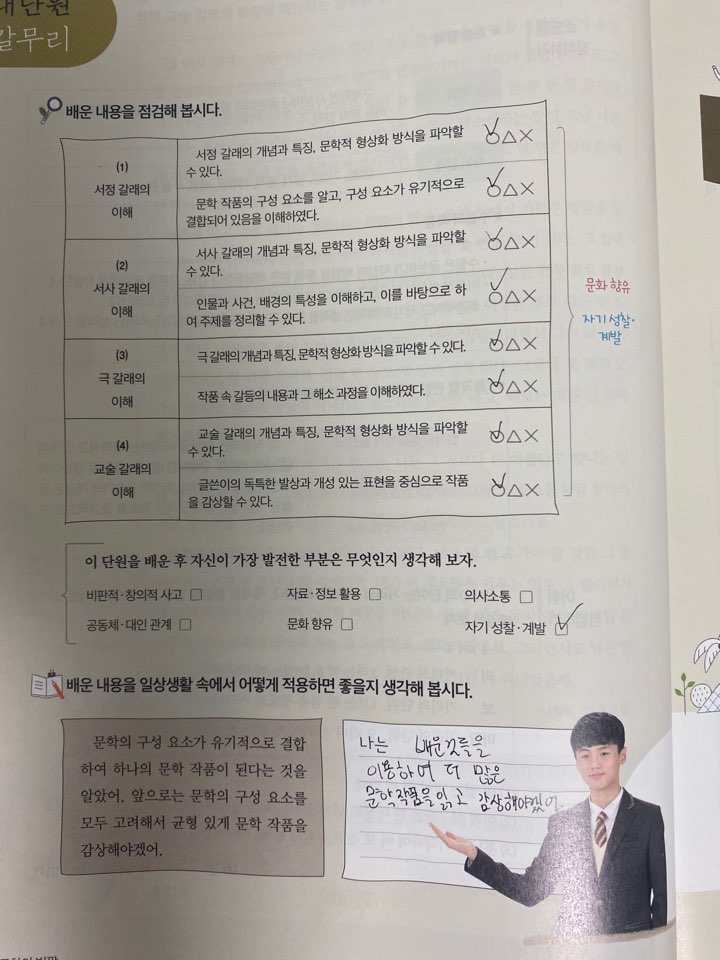 대단원
갈무리
배운 내용을 점검해 봅시다.
(1)
서정 갈래의
이해
서정 갈래의 개념과 특징, 문학적 형상화 방식을 파악할
수 있다.
○△×
문학 작품의 구성 요소를 알고, 구성 요소가 유기적으로
결합되어 있음을 이해하였다.
○△×
(2)
서사 갈래의
이해
서사 갈래의 개념과 특징, 문학적 형상화 방식을 파악할
수 있다.
○△×
인물과 사건, 배경의 특성을 이해하고, 이를 바탕으로 하
여 주제를 정리할 수 있다.
○△×
(3)
극 갈래의
이해
극 갈래의 개념과 특징, 문학적 형상화 방식을 파악할 수 있다.
○△×
작품 속 갈등의 내용과 그 해소 과정을 이해하였다.
○△×
(4)
교술 갈래의
이해
교술 갈래의 개념과 특징, 문학적 형상화 방식을 파악할
수 있다.
○△×
글쓴이의 독특한 발상과 개성 있는 표현을 중심으로 작품
을 감상할 수 있다.
○△×
문화 향유
자기 성찰·
계발
이 단원을 배운 후 자신이 가장 발전한 부분은 무엇인지 생각해 보자.
비판적·창의적 사고 □ 자료·정보 활용 □ 의사소통 □
공동체·대인 관계 □ 문화 향유 □ 자기 성찰·계발 ☑
배운 내용을 일상생활 속에서 어떻게 적용하면 좋을지 생각해 봅시다.
문학의 구성 요소가 유기적으로 결합
하여 하나의 문학 작품이 된다는 것을
알았어. 앞으로는 문학의 구성 요소를
모두 고려해서 균형 있게 문학 작품을
감상해야겠어.
나는 배운것들을
이용하여 더 많은
문학작품을 읽고 감상해야겠어.